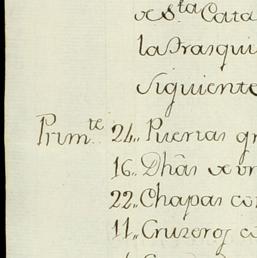 de S.ta Cata
la Frasqui
siguiente
Prim.te 24,, Puertas gr
16,, Dhas de vn
22,, Chapas con
11,, Cruzeros c